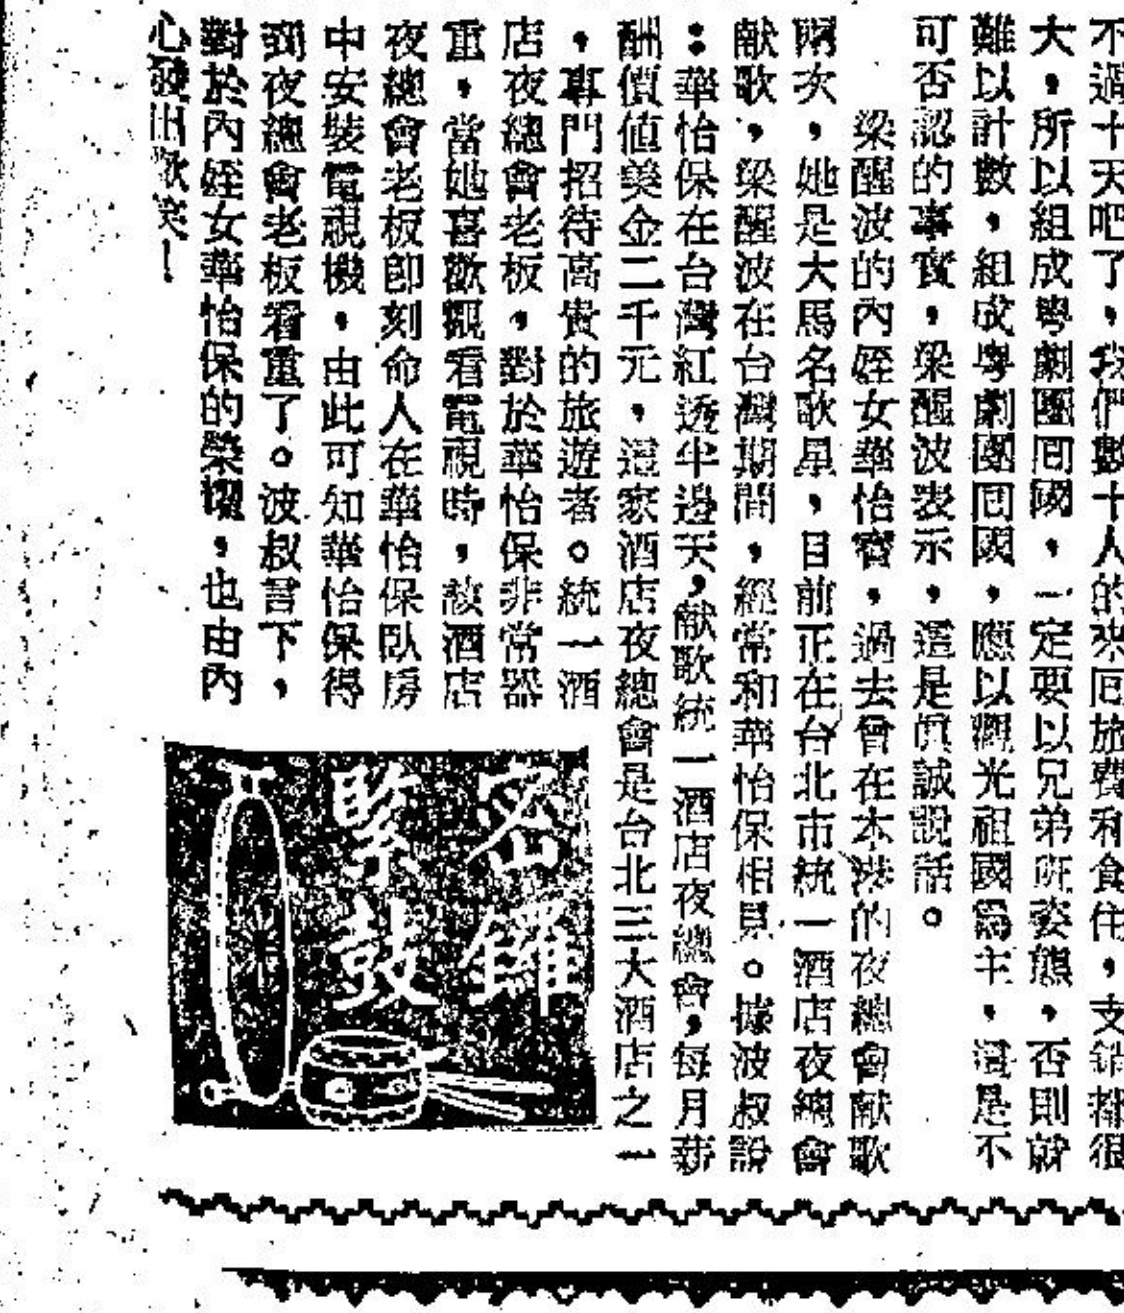 不過十天吧了，我們數十人的來囘旅費和食住，支銷都很
大，所以組成粵劇團囘國，一定要以兄弟班姿態，否則就
難以計數，組成粵劇團囘國，應以觀光祖國爲主，這是不
可否認的事實，梁醒波表示，這是眞誠說話。
梁醒波的內姪女華怡寶，過去曾在本港的夜總會献歌
兩次，她是大馬名歌星，目前正在台北市統一酒店夜總會
献歌，梁醒波在台灣期間，經常和華怡保相見。據波叔說
：華怡保在台灣紅透半邊天，献歌統一酒店夜總會，每月薪
酬價値美金二千元，這家酒店夜總會是台北三大酒店之一
，專門招待高貴的旅遊者。統一酒
店夜總會老板，對於華怡保非常器
重，當她喜歡觀看電視時，該酒店
夜總會老板卽刻命人在華怡保臥房
中安裝電視機，由此可知華怡保得
到夜總會老板看重了。波叔言下，
對於內姪女華怡保的榮耀，也由內
心發出歡笑！
密鑼
緊鼓